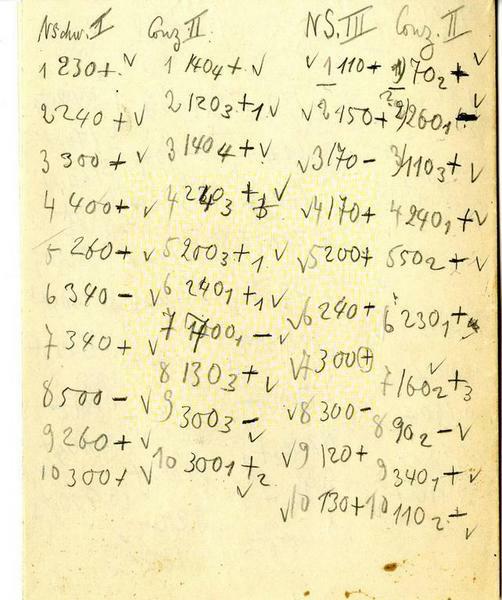 NSchw. I Conz II NS. III Conz. II
1 230+ √ 1 140₄+ √ √ 1 110+ 1) 70₂+ √
2 240+ √ 2 120₃+₁ √ √ 2 150+ 2) 260₁ √
3 300+ √ 3 140₄+ √ √ 3 170- 3/110₃+ √
4 400+ √ 4 √ 4 170+ 4 240₁+ √
5 260+ √ 5 200₃+₁ √ √ 5 200+ 5 50₂+ √
6 340- √ 6 240₁+₁ √ √ 6 240+ 6 230₁+
7 340+ √ 7 00₁- √ √ 7 300+ 7 160₂+₃ √
8 500- √ 8 130₃+ √ √ 8 300- 8 90₂- √
9 260+ √ 9 300₃- √ √ 9 120+ 9 340₁+ √
10 300+ √ 10 300₁+₂ √ √ 10 130+ 10 110₂+ √